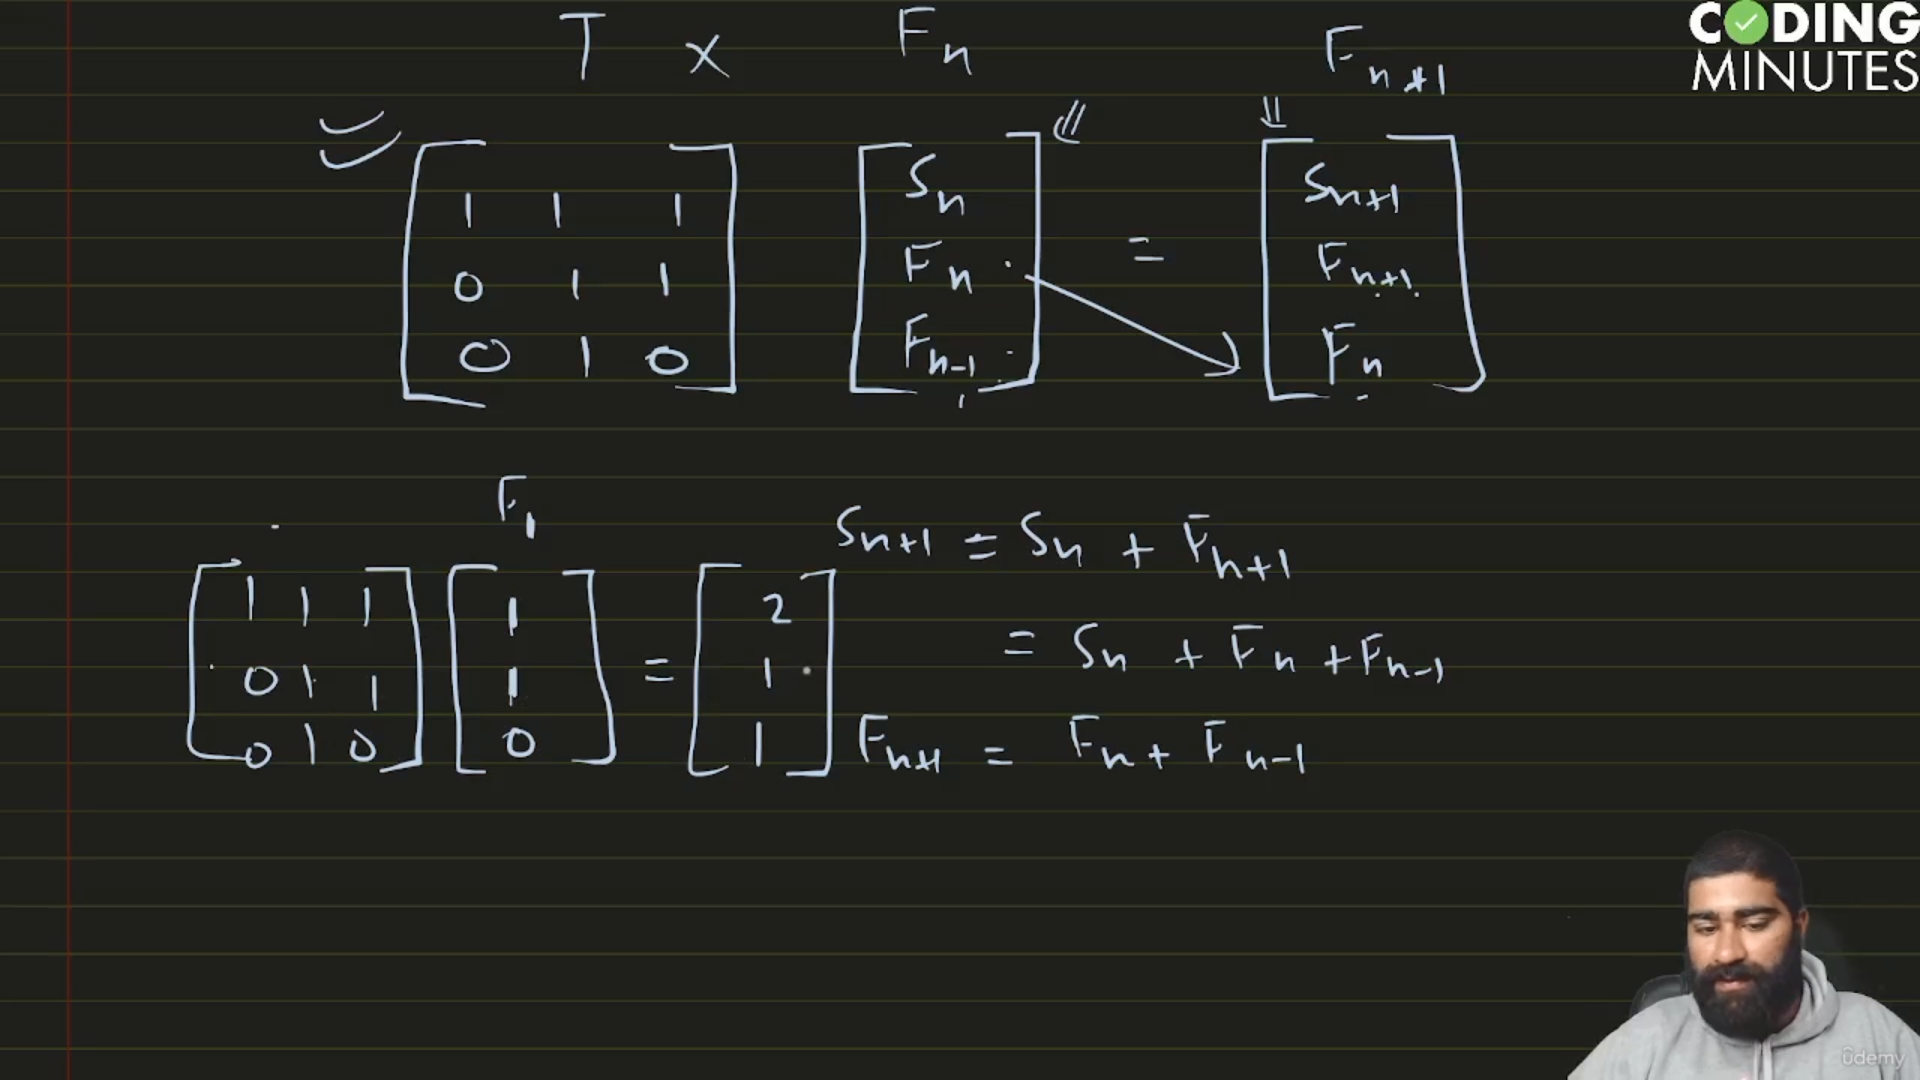 CODING
MINUTES
T x Fn Fn+1
1 1 1
0 1 1
0 1 0
Sn
Fn
Fn-1
=
Sn+1
Fn+1
Fn
F1
1 1 1
0 1 1
0 1 0
1
1
0
=
2
1
1
Sn+1 = Sn + Fn+1
= Sn + Fn + Fn-1
Fn+1 = Fn + Fn-1
ûdemy